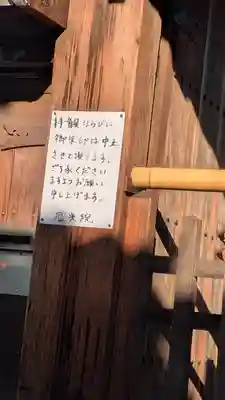 拝観ならびに
御朱印は中止
させて頂きます。
ご了承ください
ますようお願い
申し上げます。